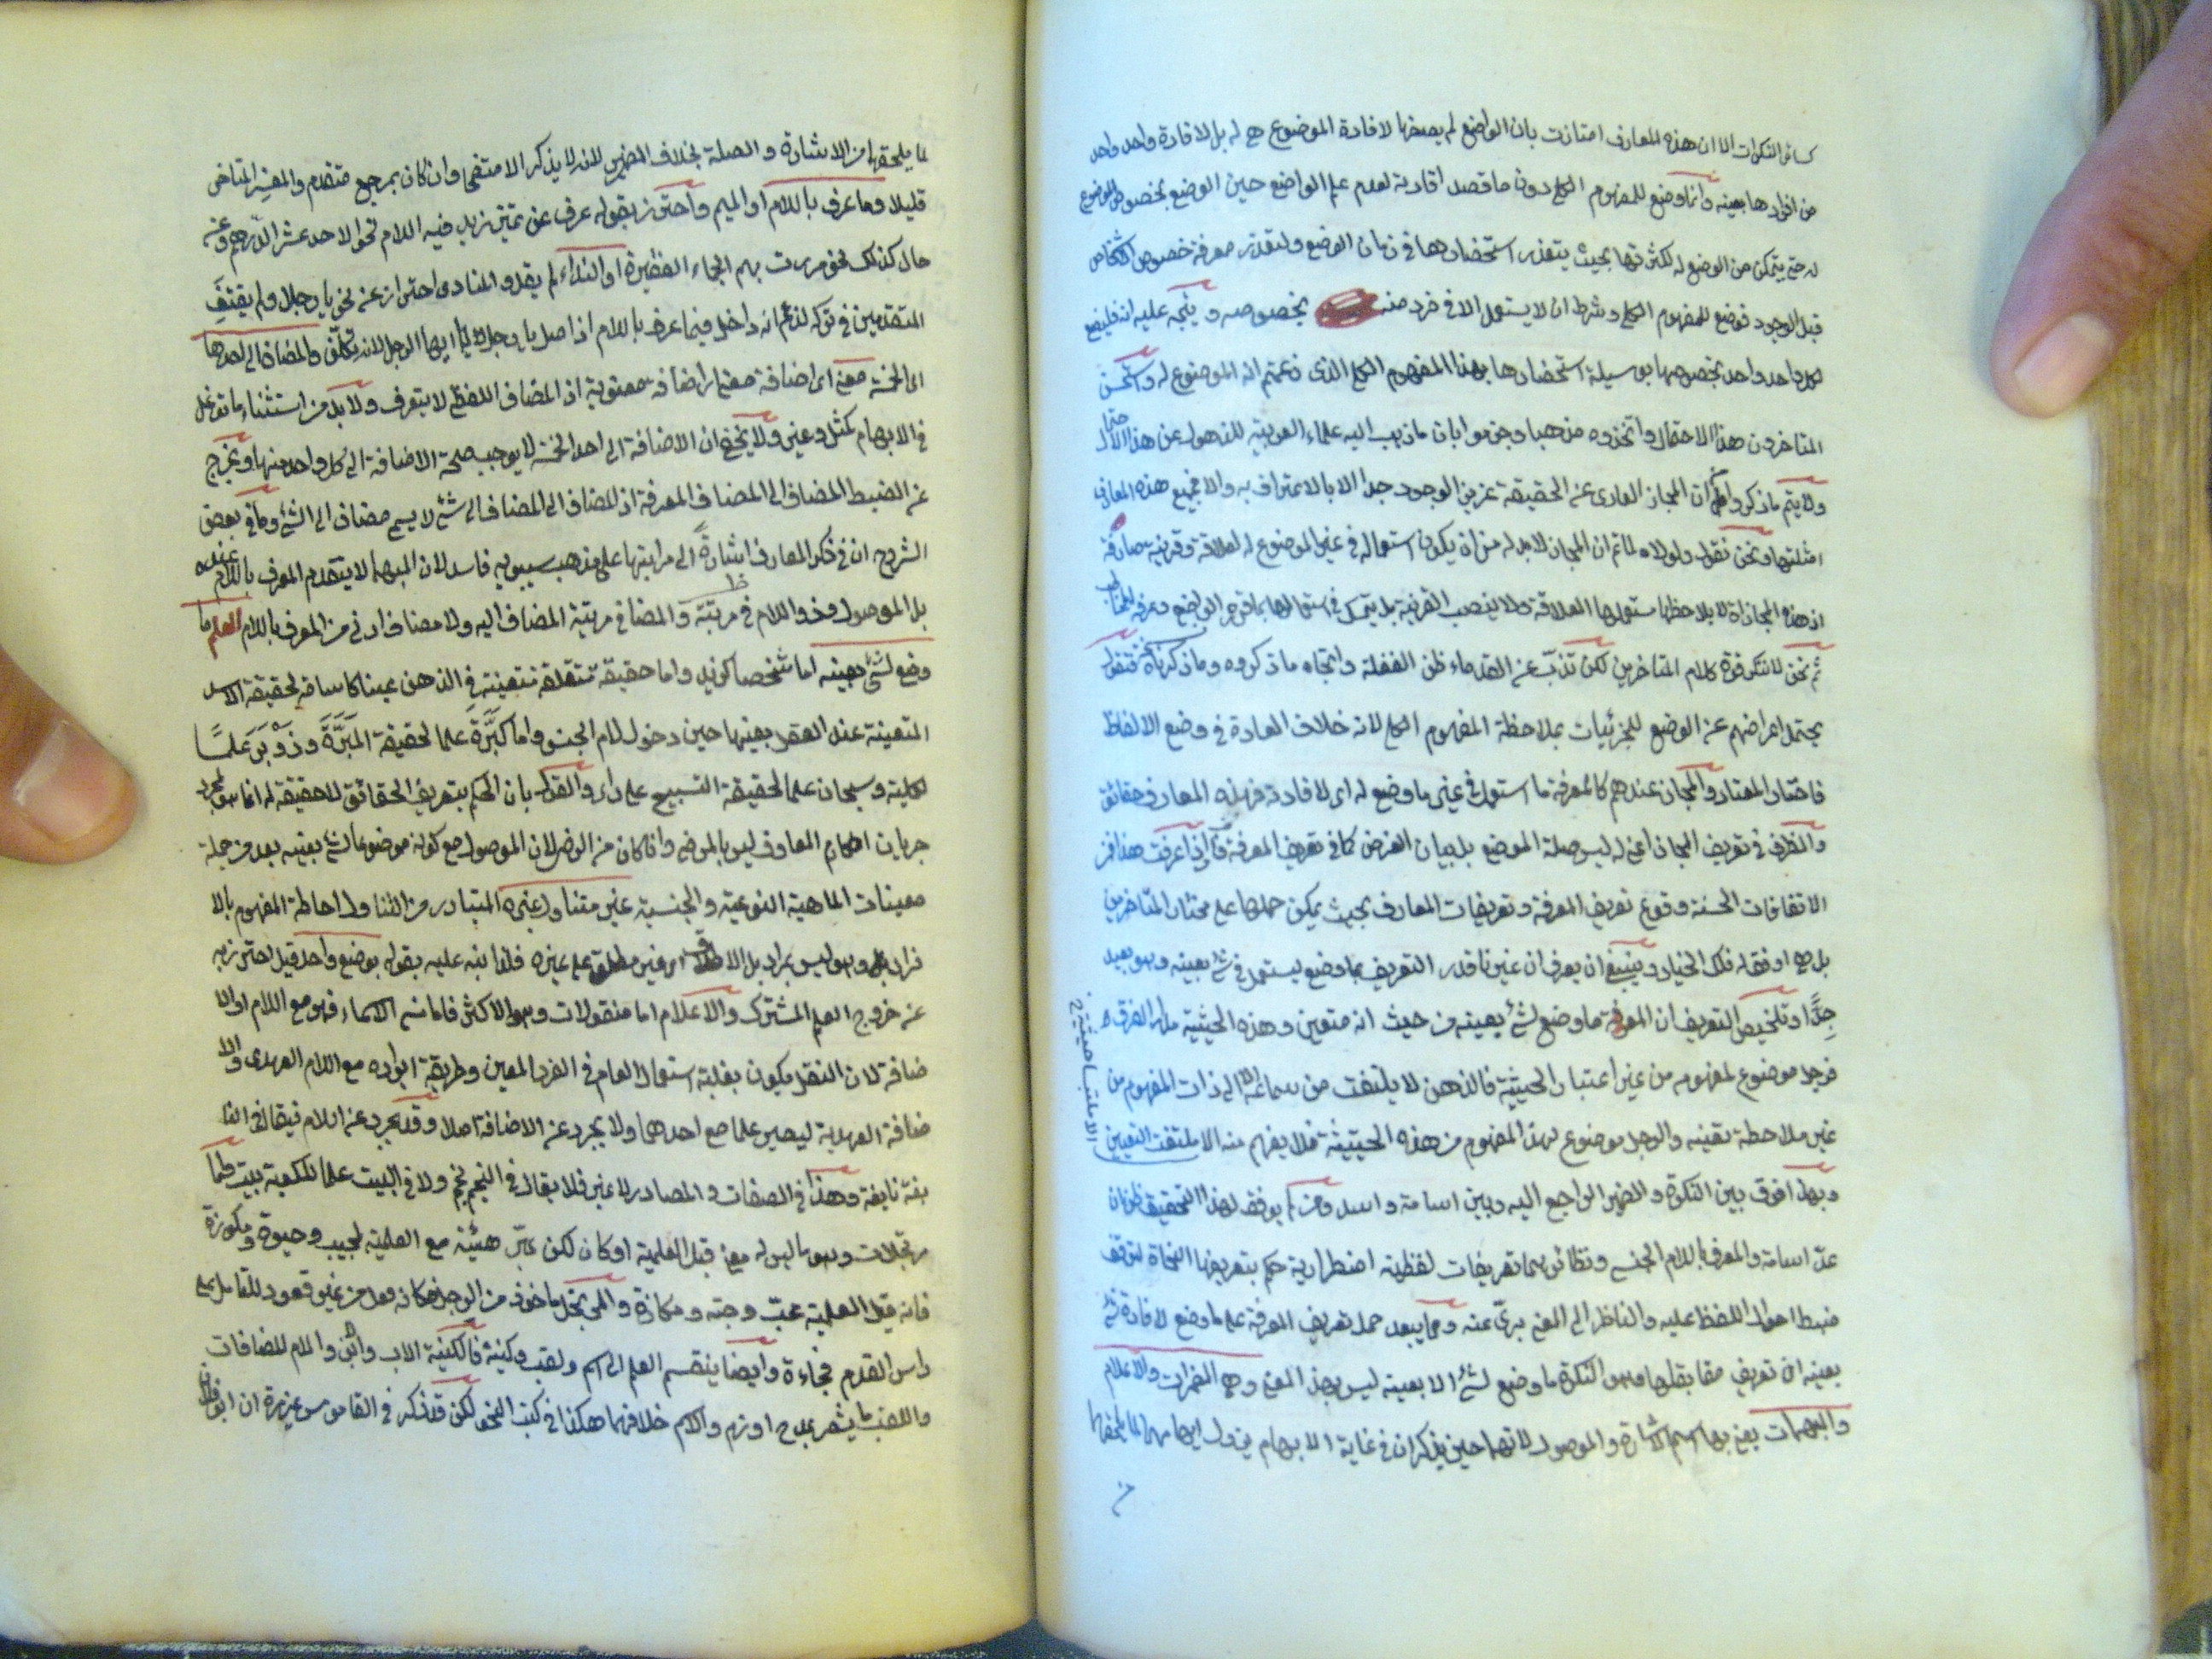 كسائر النكرات الا ان هذه المعارف امتازت بان الواضع لم يضعها لافادة الموضوع هي له بل لافادة واحد واحد
من افرادها بعينه وانما وضع للمفهوم الكلي دون ما قصد افادته لعدم علم الواضع حين الوضع بخصوص الموضوع
له حتى يتمكن من الوضع له لكثرتها بحيث يتعذر استحضارها في زمان الوضع ولتعذر معرفة خصوص اشخاص
قبل الوجود فوضع للمفهوم الكلي وشرط ان لا يستعمل الا في فرد منه بخصوصه ويتجه عليه انه فليضع
لكل واحد واحد بخصوصها بوسيلة استحضارها بهذا المفهوم الكلي الذي زعمتم انه الموضوع له واستحسن
المتاخرون هذا الاحتمال واتخذوه مذهبا وجزموا بان ما ذهب اليه علماء العربية للذهول عن هذا الاحتمال
ولا يتم ما ذكروا ان المجاز العاري عن الحقيقة عزيز الوجود جدا الا بالاعتراف به والا فجميع هذه المعارف
امثلتها ونحن نقول ولولاه لما تم ان المجاز لا بد له من ان يكون استعماله في غير الموضوع له لعلاقة وقرينة صارفة
اذ هذه المجازاة لا يلاحظ مستعملها العلاقة ولا ينصب القرينة بل يتمسك في استعمالها بما قرر الواضع وعرفه للمخاطب
ثم نحن لا ننكر قوة كلام المتاخرين لكن نذب عن القدماء ظن الغفلة واتجاه ما ذكروه وما ذكرناه نحن فنقول
يحتمل اعراضهم عن الوضع للجزئيات بملاحظة المفهوم الكلي لانه خلاف العادة في وضع الالفاظ
فاختار المعتاد والمجاز عندهم كالمعرفة ما استعمل في غير ما وضع له اي لافادته فهذه المعارف حقائق
والظرف في تعريف المجاز اعني له ليس صلة الموضع بل بيان الغرض كما في تعريف المعرفة فاذا عرفت هذا فمن
الاتفاقات الحسنة وقوع تعريف المعرفة وتعريفات المعارف بحيث يمكن حملها على مختار المتاخرين
بل هي اوفق له فلك الخيار وينبغي ان يعرف ان غيرنا قدر التعريف بما وضع ليستعمل في شئ بعينه وهو بعيد
جدا وتلخيص التعريف ان المعرفة ما وضع لشئ بعينه من حيث انه متعين وهذه الحيثية مدار الفرق
فرجل موضوع لمفهومه من غير اعتبار الحيثية فالذهن لا يلتفت من سماعه الا الى ذات المفهوم من
غير ملاحظة تعينه والرجل موضوع لهذا المفهوم من هذه الحيثية فلا يفهم منه الا ملتفت التعين
وبهذا فرق بين النكرة والضمير الراجع اليه وبين اسامة واسد ومن لم يوفق لهذا التحقيق ظن ان
عد اسامة والمعرف باللام الجنس ونظائرهما تعريفات لفظية اضطرارية حكم بتعريفها النحاة لتوقف
ضبط احوال اللفظ عليه والناظر الى المعنى بريئ عنه ومما يبعد حمل تعريف المعرفة على ما وضع لافادة شئ
بعينه ان تعريف مقابلها وهو النكرة ما وضع لشئ لا بعينه ليس بهذا المعنى وهي المضمرات والاعلام
والمبهمات يعني بها اسم الاشارة والموصول لانهما حين يذكران في غاية الابهام يزول ابهامهما لما يلحقها
الا ملتبسا
لما يلحقها من الاشارة والصلة بخلاف الضمير لانه لا يذكر الا متضحا وان كان بمرجع متقدم والمفسر المتاخر
قليلا وما عرف باللام او الميم واحترز بقوله عرف عن تمييز زيد فيه اللام نحو الاحد عشر الدرهم وعن
حال كذلك نحو مررت بهم الجماء الغفيرة او النداء لم يقل والمنادى احتراز عن نحو يا رجلا ولم يقتف
المتقدمين في تركه لزعم انه داخل فيما عرف باللام اذ اصل يا رجل يا ايها الرجل لانه تكلف والمضاف الى احدها
اي الخمسة معنى اي اضافة معنى اي اضافة معنوية اذ المضاف اللفظي لا يتعرف ولا بد من استثناء ما توغل
في الابهام كمثل وغير ولا يخفى ان الاضافة الى احد الخمسة لا يوجب صحة الاضافة الى كل واحد منها ويخرج
عن الضبط المضاف الى المضاف المعرفة اذ المضاف الى المضاف الى شئ لا يسمى مضافا الى الشئ وما في بعض
الشروح ان في ذكر المعارف اشارة الى مراتبها على مذهب سيبويه فاسد لان المبهم لا يتقدم المعرف باللام عنده
بل الموصول وذو اللام في مرتبة والمضاف في مرتبة المضاف اليه ولا مضاف ادنى من المعرف باللام العلم ما
وضع لشئ بعينه اما شخصا كزيد واما حقيقة متعلقة متعينة في الذهن عينا كاسامة لحقيقة الاسد
المتعينة عند العقل بعينها حين دخول لام الجنس واما كبرة علما لحقيقة المبرة وزوبر علما
لكليته وسبحان علما لحقيقة التسبيح على راي والقول بان الحكم بتعريف الحقائق لا حقيقة له انما هو لمجرد
جريان احكام المعارف ليس بالمرضي وان كان من الرضي لان الموصول مع كونه موضوعا لشئ بعينه يعد من جملة
معينات الماهية النوعية والجنسية غير متناول غيره المتبادر من التناول احاطة المفهوم بالا
فراد وهو ليس بمراد بل الاطلاق اي غير مطلق على غيره فلذا نبه عليه بقوله بوضع واحد قيل احترز به
عن خروج العلم المشترك والاعلام اما منقولات وهو الاكثر فاما من الاسماء فهو مع اللام او الا
ضافة لان النقل يكون بغلبة استعمال العام في الفرد المعين وطريقة ايراده مع اللام العهدي والا
ضافة العهدية ليصير علما مع احدهما ولا يجرد عن الاضافة اصلا وقد يجرد عن اللام فيقال في النا
بغة نابغة وهذا في الصفات والمصادر لا غير فلا يقال في النجم نجم ولا في البيت علما للكعبة بيت واما
مرتجلات وهو ما ليس له معنى قبل العلمية او كان لكن غير هيئته مع العلمية لحبيب وحيوة ومكوزة
فانه قبل العلمية محب وحية ومكازة والمرتجل ماخوذ من الرجل فكانه فعل من غير قعود للتامل على
راس القدم فجاءة وايضا ينقسم العلم الى اسم ولقب وكنية فالكنية الاب وابن والام المضافات
واللقب ما يشعر بمدح او ذم والاسم خلافهما هكذا في كتب النحو لكن قد ذكر في القاموس عزيزة ان ابو فلان